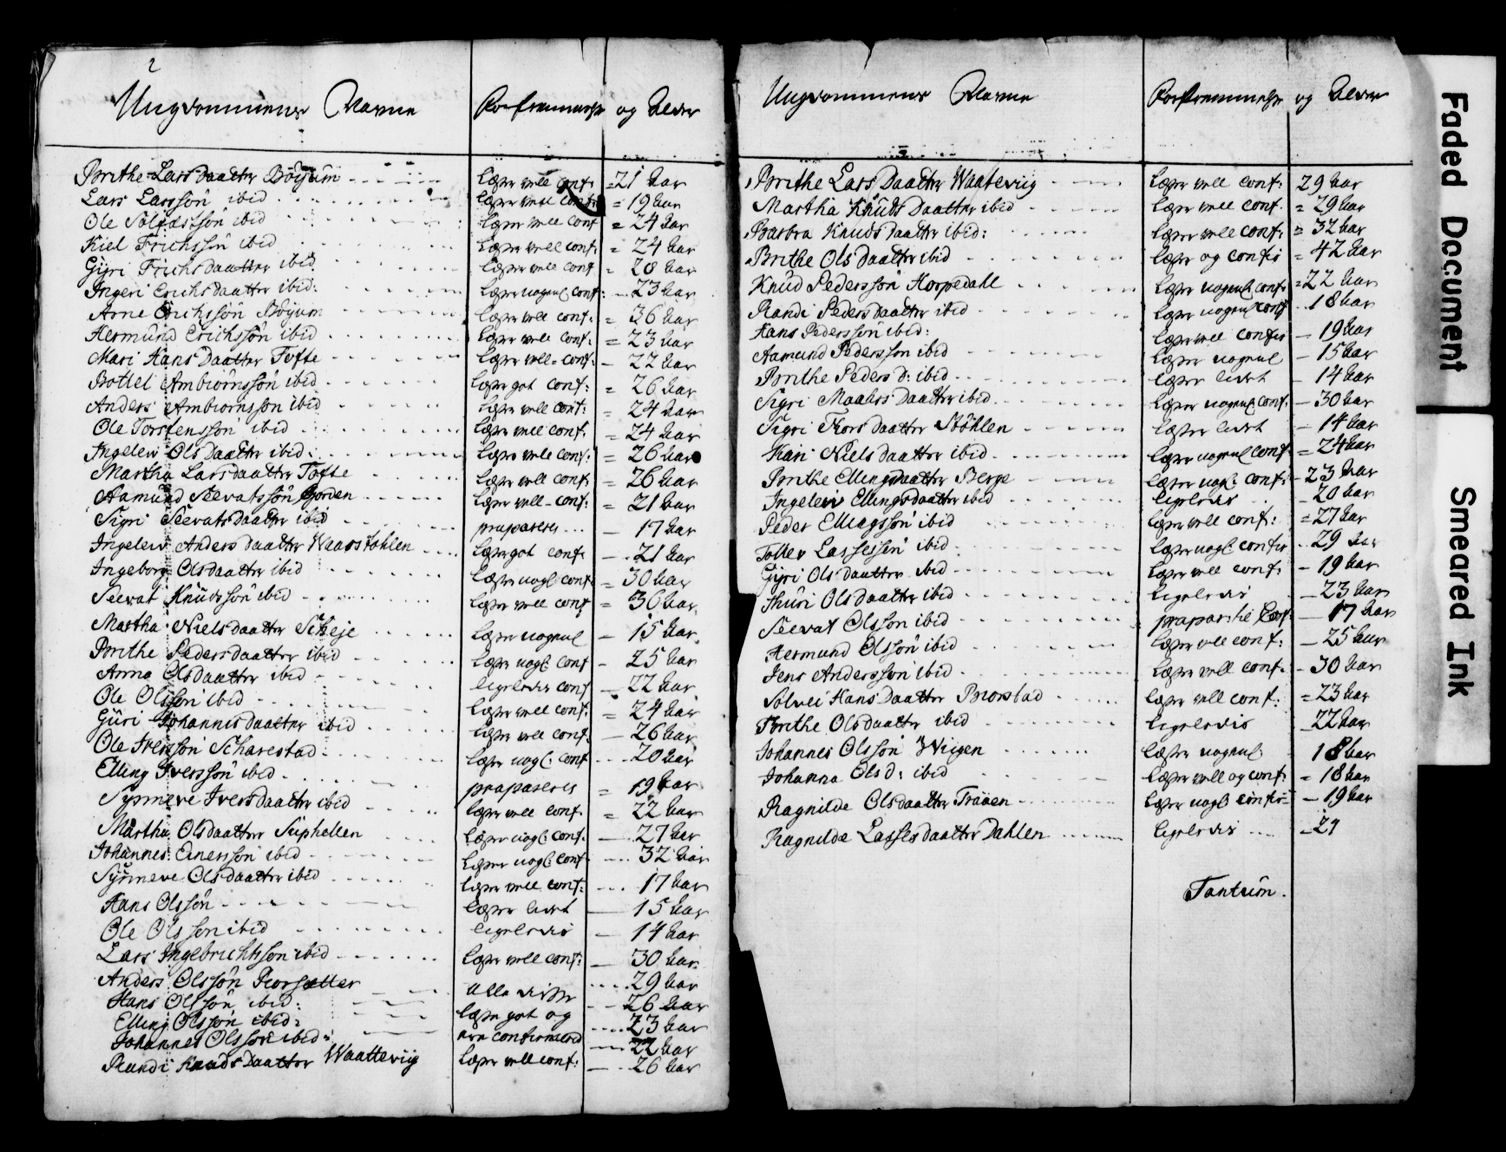 2
Ungdommens Navne Forfremmelse og Alder
Brithe Lars Daatter Böyum læser vell conf: = 21 Aar
Lars Larssön ibid læser vell conf: = 19 Aar
Ole ibid læser vell conf = 24 Aar
Kiel Erichssön ibid læser vell conf: = 24 Aar
Gÿri Erichs daatter ibid læser vell conf = 28 Aar
Ingeri Erichs daatter ibid: læser nogenl conf: 23 Aar
Arne Erichssön Böyum læser vell conf: = 36 Aar
Hermund Erichssön ibid læser vell conf: = 23 Aar
Mari Hans Daatter Tofte læser vell conf: 22 Aar
Bottel Ambiörnssön ibid læser got conf: = 26 Aar
Anders Ambiörnssön ibid læser vell conf: = 24 Aar
Ole Torstenssön ibid læser vell conf: = 24 Aar
Ingelew Olsdaatter ibid: læser vell conf: = 26 Aar
Martha Larsdaatter Tofte læser vell conf: = 26 Aar
Aamund Seevatssön Gorden læser vell conf: = 21 Aar
Sigri Seevatsdaatter ibid præpareres 17 Aar
Ingelew Anders daatter Waarstöhlen læser got conf: 21 Aar
Ingeborg Olsdaatter ibid læser nogl conf = 30 Aar
Seevat Knudssön ibid læser vell conf = 36 Aar
Martha Nielsdaatter Scheje læser nogenl 15 Aar
Brithe Pedersdaatter ibid læser nogl conf 25 Aar
Anna Olsdaatter ibid ligeledis conf 22 Aar
Ole Olssön ibid læser vell conf: = 24 Aar
Güri Johannis daatter ibid læser vell conf: 26 Aar
Ole Iverssön Scharestad læser nogl: conf 20 Aar
Elling Iverssön ibid præpareres = 19 Aar
Synneve Iversdaatter ibid læser vell conf: = 22 Aar
Martha Olsdaatter Suphellen læser nogl: conf: 27 Aar
Johannes Einerssön ibid læser nogl: conf 32 Aar
Synneve Olsdaatter ibid læser vell conf: 17 Aar
Hans Olssön læser lidet 15 Aar
Ole Olssön ibid ligeledis 14 Aar
Lars Ingebrichtssön ibid læser vell conf: 30 Aar
Anders Olssön alle disse 29 Aar
Hans Olssön ibid: læse got og 26 Aar
Elling Olssön ibid: ere confirmered 23 Aar
Johannes Olssön ibid: 22 Aar
Randi Knuds Daatter Waatteviig læser vell conf: 26 Aar
Ungdommens Navne Forfremmelse og Alder
Brithe Lars Daatter Waatteviig læser vell conf: 29 Aar
Martha Knuds Daatter ibid læser vell conf: = 29 Aar
Barbra Knuds Daatter ibid: læser vell conf: = 32 Aar
Brithe Ols Daatter ibid læser og confir = 42 Aar
Knud Pederssön Horpedall læser nogenl conf = 22 Aar
Randi Peders daatter ibid læser nogenl conf 18 Aar
Hans Pederssön ibid: læser vell confir 19 Aar
Aamund Pederssön ibid læser nogenl 15 Aar
Brithe Peders D: ibid læser lidet 14 Aar
Sigri Maatis Daatter ibid læser nogenl conf: 30 Aar
Sigri Tiors daatter Stöhlen læser lidet 14 Aar
Kari Niels daatter ibid læser nogenl conf = 24 Aar
Brithe Ellings daatter Berge læser nogl: conf 23 Aar
Ingelew Ellings daatter ibid ligeledis 20 Aar
Peder Ellingssön ibid læser vell conf: = 27 Aar
Tollev Lassessön ibid læser nogl confir 29 Aar
Gÿri Ols daatter ibid læser vell conf: 19 Aar
Thuri Ols daatter ibid ligeledis 23 Aar
Seevat Olssön ibid præpar: til Conf: 17 Aar
Hermund Olssön ibid læser vell conf: 25 Aar
Jens Anderssön ibid læser vell conf: 30 Aar
Solvei Hans Daatter Brorstad læser vell conf: = 23 Aar
Brithe Olsdaatter ibid ligeledis 22 Aar
Johannes Olssön Wiigen læser nogenl 18 Aar
Johanna Ols d: ibid læser vell og conf: = 18 Aar
Ragnilde Olsdaatter Tråaen læser nogl confir 19 Aar
Ragnilde Lasses daatter Dahlen ligeledis 29
Tantum.
Faded Document
Smeared Ink